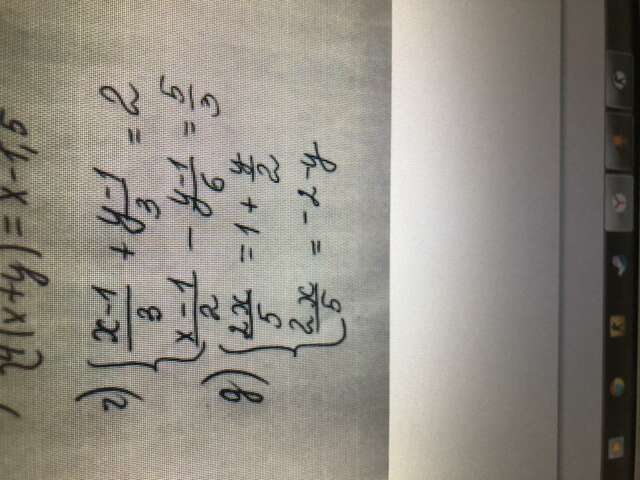 4(x+y) = x-1,5
г) { (x-1)/3 + (y-1)/3 = 2
(x-1)/2 - (y-1)/6 = 5/3
д) { 2x/5 = 1 + y/2
2x/5 = -2-y